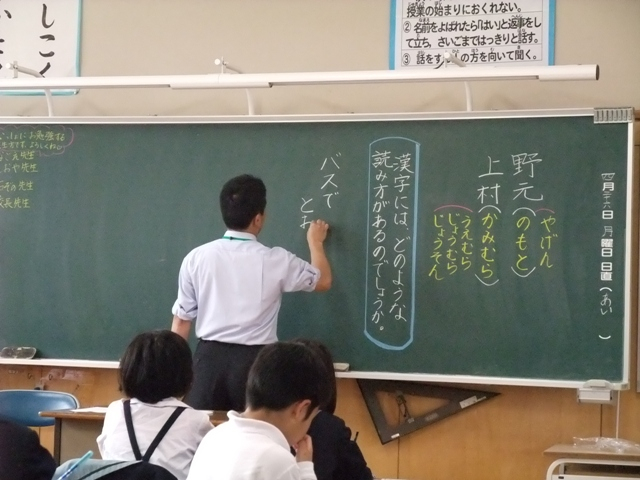 しこく
授業の始まりにおくれない。
②名前をよばれたら「はい」と返事をし
て立ち、さいごまではっきりと話す。
③話をす人の方を向いて聞く。
四月二十六日 月曜日 日直(あい )
やげん
野元(のもと)
上村(かみむら)
うえむら
じょうむら
じょうそん
漢字には、どのような
読み方があるのでしょうか。
バスで
とお
先生
おや先生
先生
校長先生